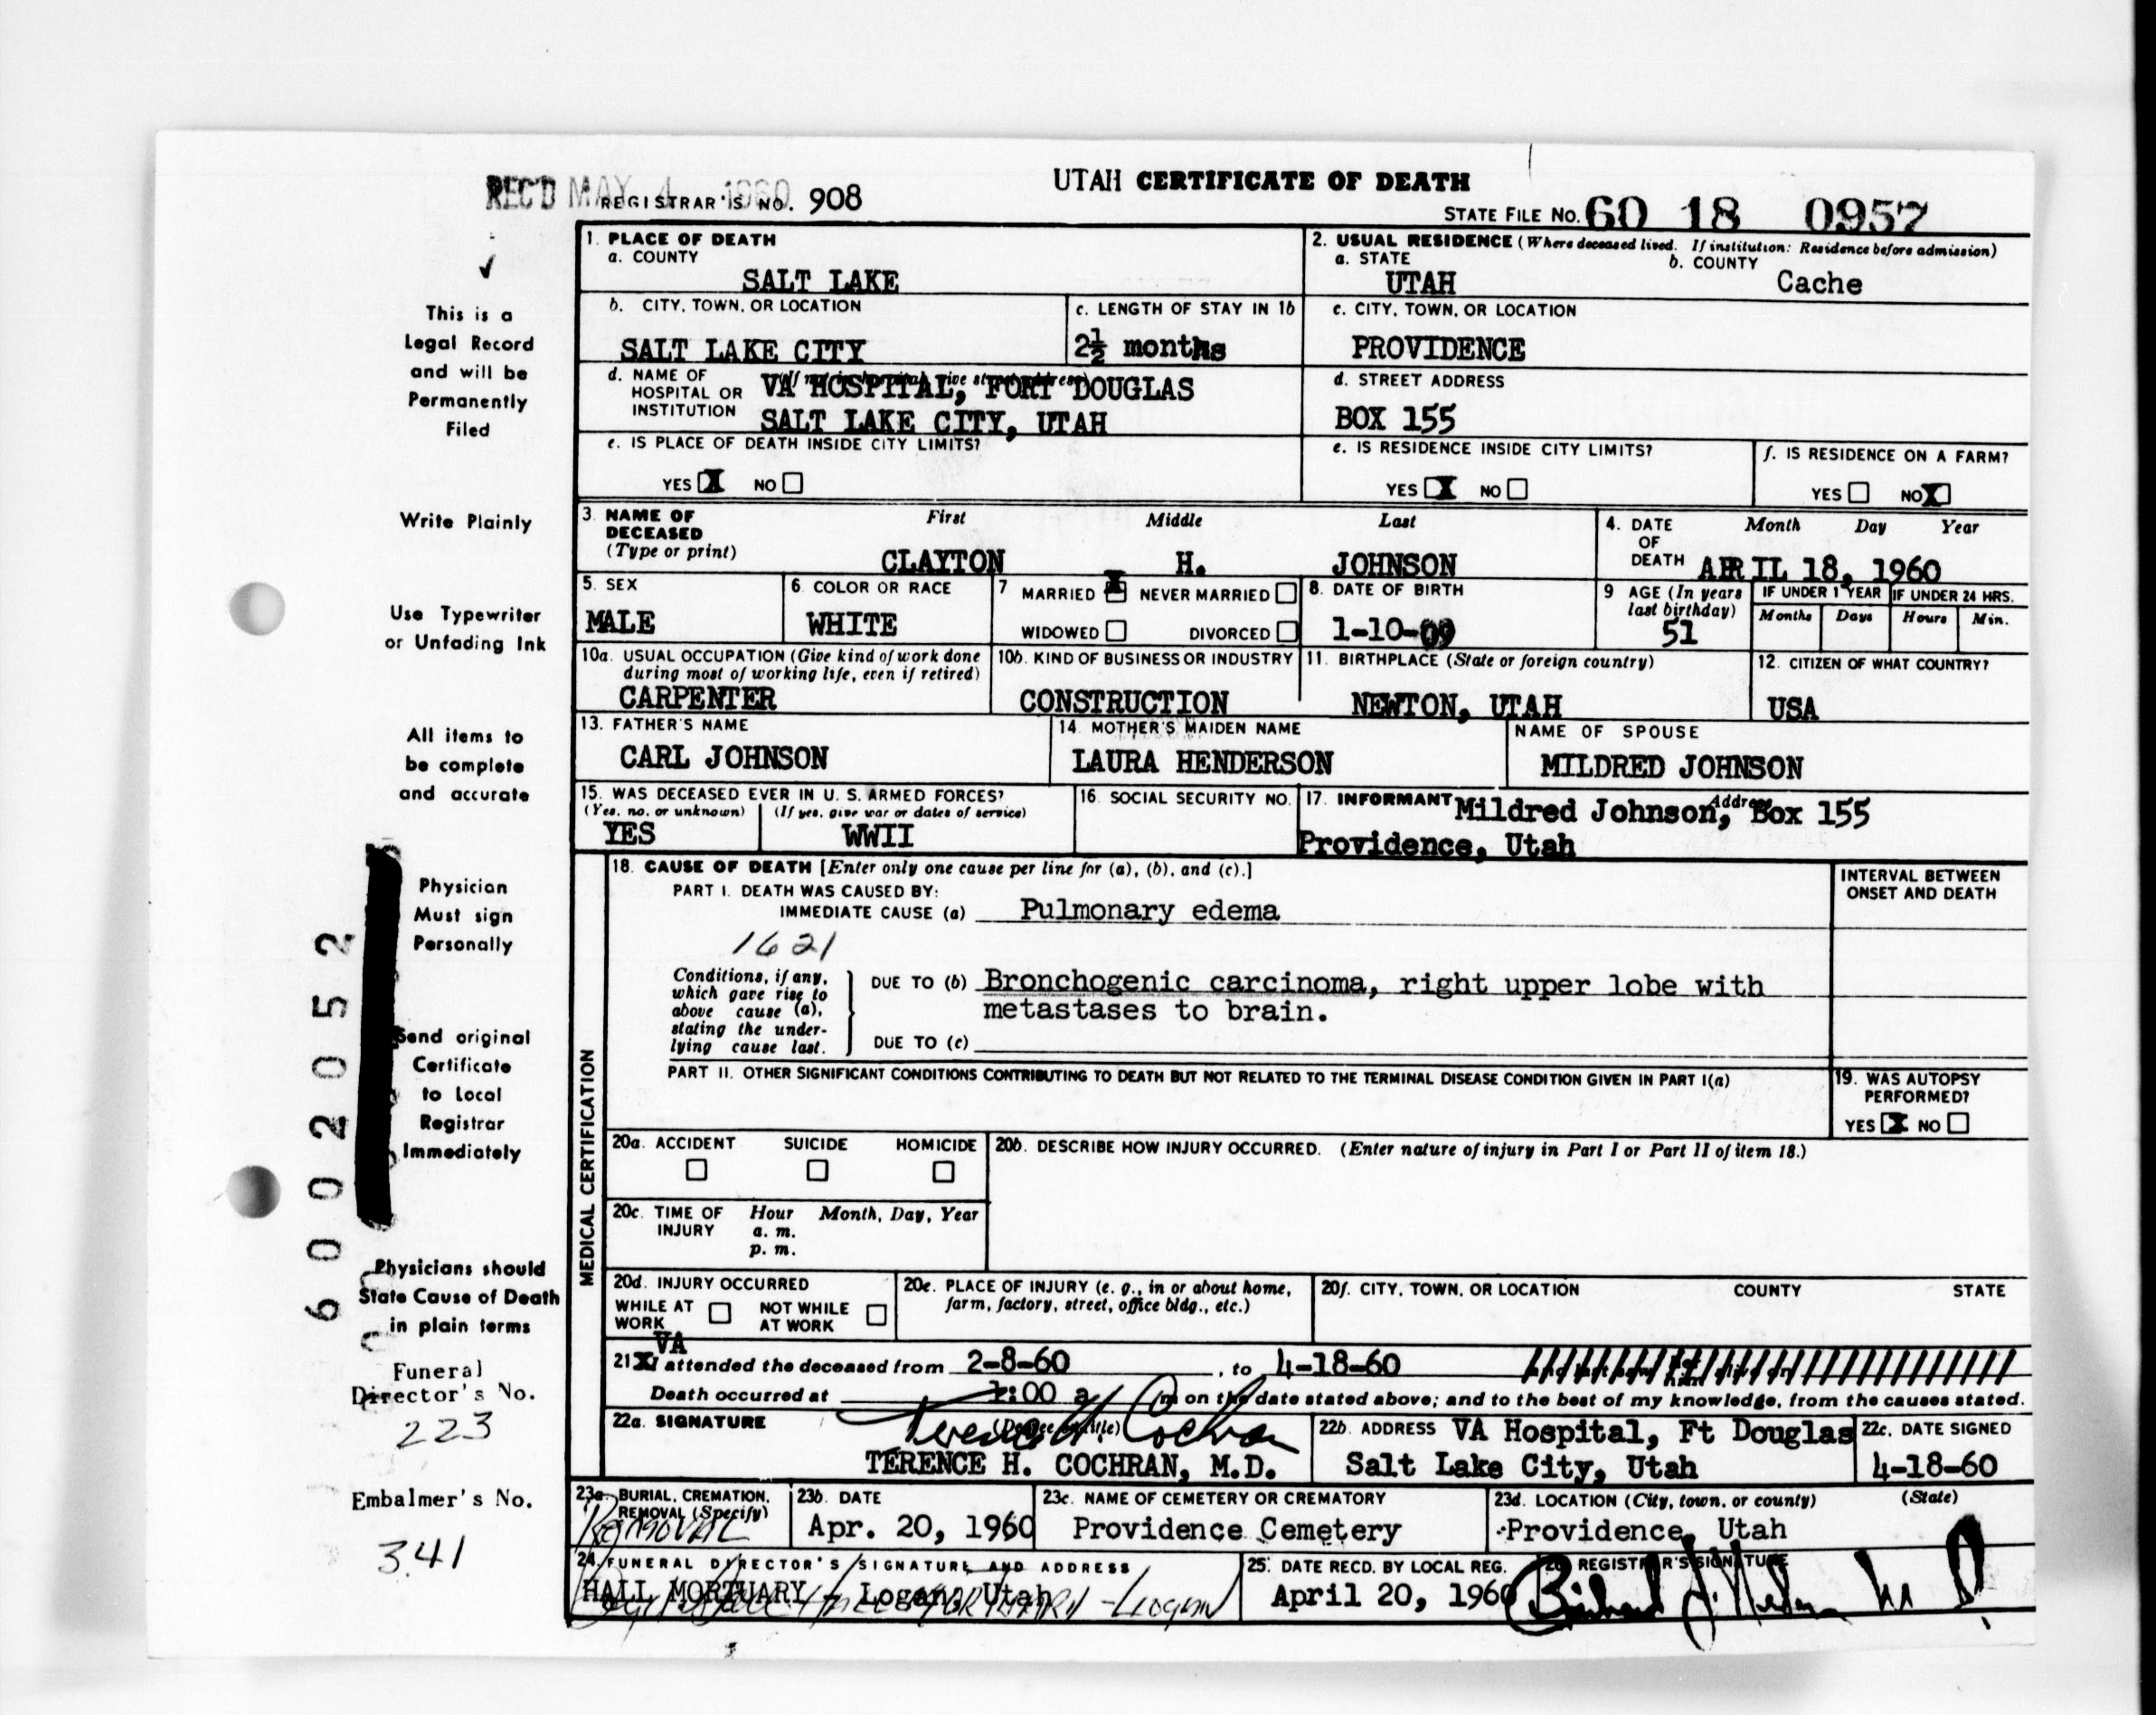 UTAH CERTIFICATE OF DEATH
REC'D MAY 4 1960
REGISTRAR'S NO. 908
STATE FILE NO. 60 18 0957
1. PLACE OF DEATH
a. COUNTY
SALT LAKE
2. USUAL RESIDENCE (Where deceased lived. If institution: Residence before admission)
a. STATE b. COUNTY
UTAH Cache
b. CITY, TOWN, OR LOCATION
SALT LAKE CITY
c. LENGTH OF STAY IN 1b
2½ months
c. CITY, TOWN, OR LOCATION
PROVIDENCE
d. NAME OF HOSPITAL OR INSTITUTION (If not in hospital, give street address)
VA HOSPITAL, FORT DOUGLAS
SALT LAKE CITY, UTAH
d. STREET ADDRESS
BOX 155
e. IS PLACE OF DEATH INSIDE CITY LIMITS?
YES X NO
e. IS RESIDENCE INSIDE CITY LIMITS?
YES X NO
f. IS RESIDENCE ON A FARM?
YES NO X
3. NAME OF DECEASED (Type or print)
First Middle Last
CLAYTON H. JOHNSON
4. DATE OF DEATH Month Day Year
APRIL 18, 1960
5. SEX
MALE
6. COLOR OR RACE
WHITE
7. MARRIED X NEVER MARRIED
WIDOWED DIVORCED
8. DATE OF BIRTH
1-10-09
9 AGE (In years last birthday)
51
IF UNDER 1 YEAR IF UNDER 24 HRS.
Months Days Hours Min.
10a. USUAL OCCUPATION (Give kind of work done during most of working life, even if retired)
CARPENTER
10b. KIND OF BUSINESS OR INDUSTRY
CONSTRUCTION
11. BIRTHPLACE (State or foreign country)
NEWTON, UTAH
12. CITIZEN OF WHAT COUNTRY?
USA
13. FATHER'S NAME
CARL JOHNSON
14. MOTHER'S MAIDEN NAME
LAURA HENDERSON
NAME OF SPOUSE
MILDRED JOHNSON
15. WAS DECEASED EVER IN U. S. ARMED FORCES?
(Yes, no, or unknown) (If yes, give war or dates of service)
YES WWII
16. SOCIAL SECURITY NO.
17. INFORMANT Address
Mildred Johnson, Box 155
Providence, Utah
MEDICAL CERTIFICATION
18. CAUSE OF DEATH [Enter only one cause per line for (a), (b), and (c).]
PART I. DEATH WAS CAUSED BY:
IMMEDIATE CAUSE (a) Pulmonary edema
1621
Conditions, if any, which gave rise to above cause (a), stating the underlying cause last.
DUE TO (b) Bronchogenic carcinoma, right upper lobe with
metastases to brain.
DUE TO (c)
INTERVAL BETWEEN ONSET AND DEATH
PART II. OTHER SIGNIFICANT CONDITIONS CONTRIBUTING TO DEATH BUT NOT RELATED TO THE TERMINAL DISEASE CONDITION GIVEN IN PART I(a)
19. WAS AUTOPSY PERFORMED?
YES X NO
20a. ACCIDENT SUICIDE HOMICIDE
20b. DESCRIBE HOW INJURY OCCURRED. (Enter nature of injury in Part I or Part II of item 18.)
20c. TIME OF INJURY Hour Month, Day, Year
a. m.
p. m.
20d. INJURY OCCURRED
WHILE AT WORK NOT WHILE AT WORK
20e. PLACE OF INJURY (e. g., in or about home, farm, factory, street, office bldg., etc.)
20f. CITY, TOWN, OR LOCATION COUNTY STATE
VA
21. I attended the deceased from 2-8-60, to 4-18-60
Death occurred at 1:00 a m on the date stated above; and to the best of my knowledge, from the causes stated.
22a. SIGNATURE (Degree or title)
Terence H. Cochran
TERENCE H. COCHRAN, M.D.
22b. ADDRESS VA Hospital, Ft Douglas
Salt Lake City, Utah
22c. DATE SIGNED
4-18-60
23a. BURIAL, CREMATION, REMOVAL (Specify)
REMOVAL
23b. DATE
Apr. 20, 1960
23c. NAME OF CEMETERY OR CREMATORY
Providence Cemetery
23d. LOCATION (City, town, or county) (State)
Providence, Utah
24. FUNERAL DIRECTOR'S SIGNATURE AND ADDRESS
HALL MORTUARY - Logan, Utah
25. DATE RECD. BY LOCAL REG.
April 20, 1960
26. REGISTRAR'S SIGNATURE
This is a
Legal Record
and will be
Permanently
Filed
Write Plainly
Use Typewriter
or Unfading Ink
All items to
be complete
and accurate
Physician
Must sign
Personally
Send original
Certificate
to Local
Registrar
Immediately
Physicians should
State Cause of Death
in plain terms
Funeral
Director's No.
223
Embalmer's No.
341
6002052